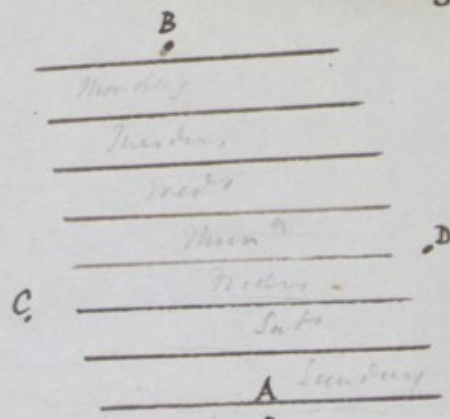 B
Monday
Tuesday
Wed^s
Thurs^s
D
Friday
C
Sat^s
A Sunday